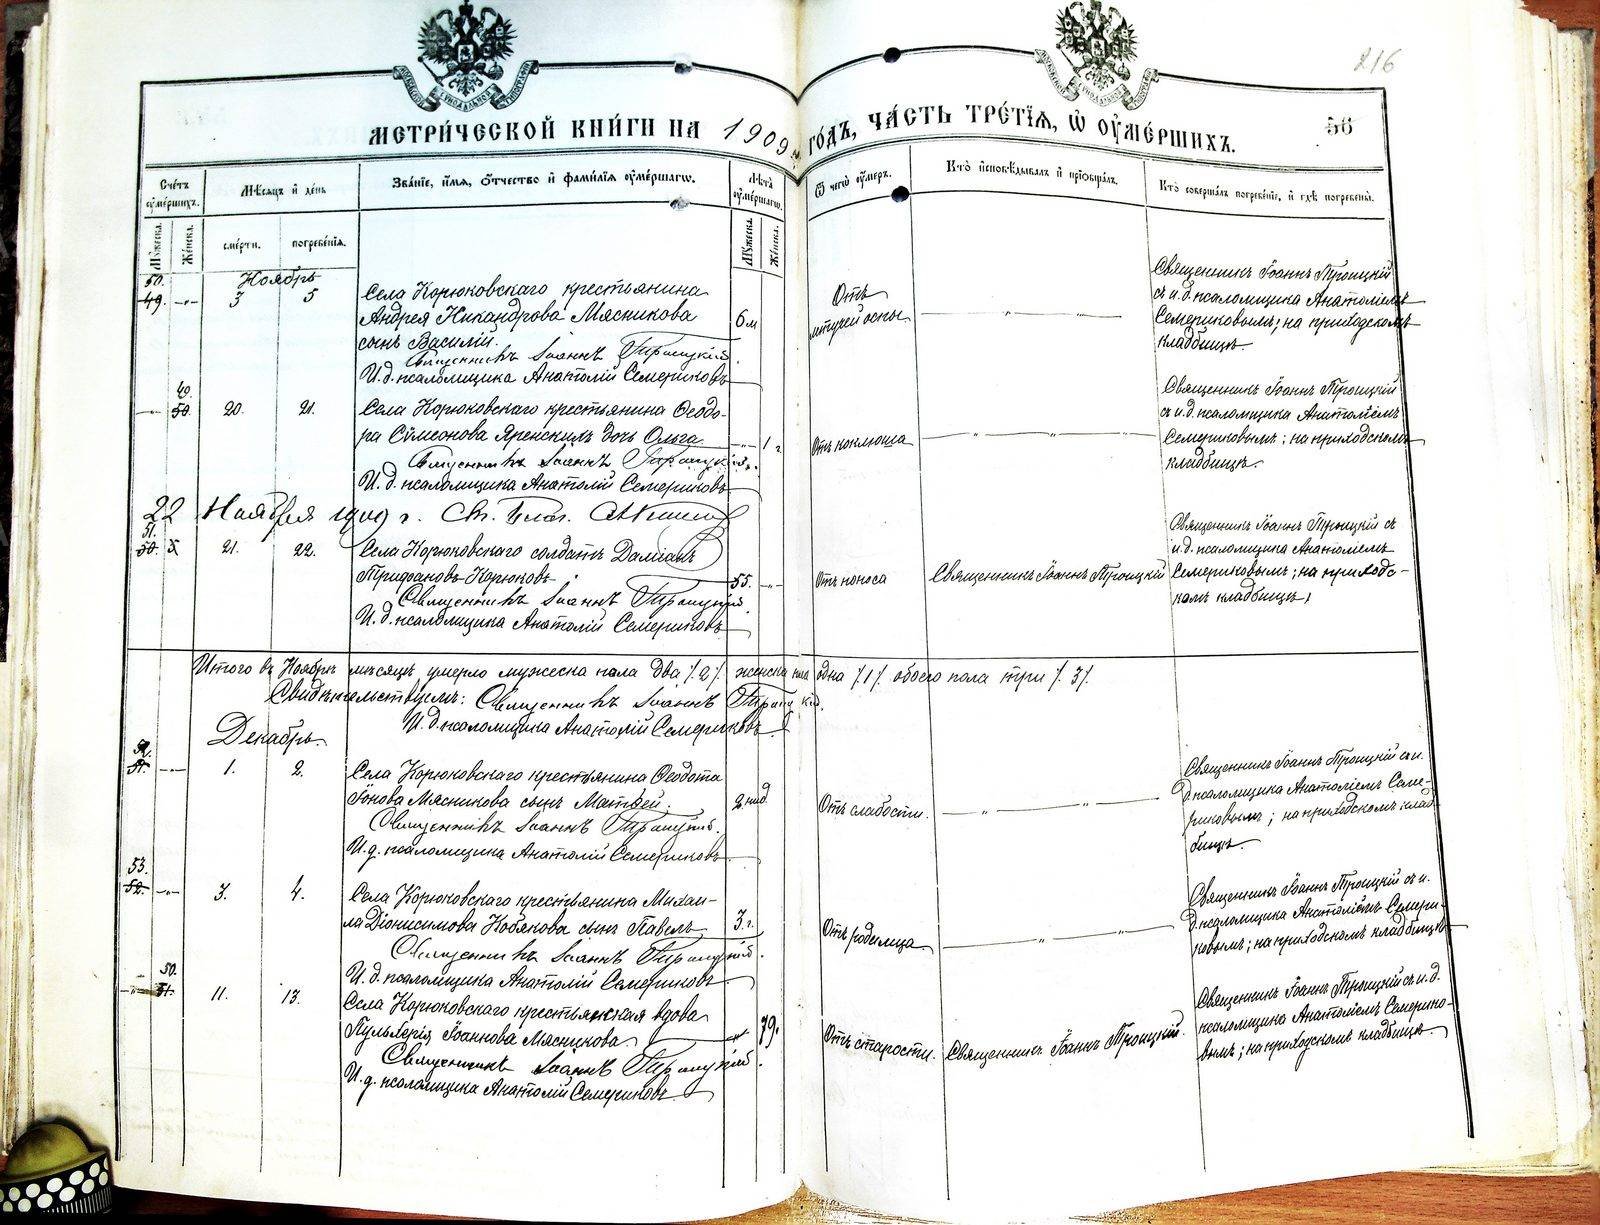 216
МЕТРИ́ЧЕСКОЙ КНИ́ГИ НА 1909 ГО́ДЪ, ЧА́СТЬ ТРЕ́ТІЯ, Ѽ ОУМЕ́РШИХЪ.
56
Сче́тъ оумершихъ.
Мѣсяцъ и день
Зва́ніе, и́мя, о́тчество и фами́лія оуме́ршагѡ.
Лѣ́та оуме́ршагѡ.
Ѿ чегѡ̀ оу́меръ.
Кто̀ исповѣ́дывалъ и пріобща́лъ.
Кто̀ соверша́лъ погребе́ніе, и гдѣ̀ погребены̀.
Му́жеска.
Же́нска.
сме́рти.
погребе́нія.
Му́жеска.
Же́нска.
50.
Ноябрь
49. -"- 3 5
Села Корюковскаго крестьянина
Андрея Никандрова Мясникова
сынъ Василій.
Священникъ Іоаннъ Троицкій.
И.д. псаломщика Анатолій Семериковъ
6 м
Отъ
оспы
Священникъ Іоаннъ Троицкій
съ и.д. псаломщика Анатоліемъ
Семериковымъ; на приходскомъ
кладбищѣ.
49.
-"- 50. 20. 21.
Села Корюковскаго крестьянина Ѳеодо-
ра Сѵмеонова Яренскихъ дочь Ольга
Священникъ Іоаннъ Троицкій.
И.д. псаломщика Анатолій Семериковъ
-"- 1 г
Отъ коклюша
Священникъ Іоаннъ Троицкій
съ и.д. псаломщика Анатоліемъ
Семериковымъ; на приходскомъ
кладбищѣ.
22 Ноября 1909 г. Св. Благ.
51.
50. 21. 22.
Села Корюковскаго солдатъ Даміанъ
Трифановъ Корюковъ.
Священникъ Іоаннъ Троицкій.
И.д. псаломщика Анатолій Семериковъ
55. -"-
Отъ поноса
Священникъ Іоаннъ Троицкій
Священникъ Іоаннъ Троицкій съ
и.д. псаломщика Анатоліемъ
Семериковымъ; на приходс-
комъ кладбищѣ.
Итого въ Ноябрѣ мѣсяцѣ умерло мужеска пола два /.2/. женска пола одна /.1/. обоего пола три /.3/.
Свидѣтельствуемъ: Священникъ Іоаннъ Троицкій.
И.д. псаломщика Анатолій Семериковъ
Декабрь.
52.
51. -"- 1. 2.
Села Корюковскаго крестьянина Ѳеодота
Іонова Мясникова сынъ Матѳей.
Священникъ Іоаннъ Троицкій.
И.д. псаломщика Анатолій Семериковъ
2 нед.
Отъ слабости.
Священникъ Іоаннъ Троицкій съ и.
д. псаломщика Анатоліемъ Семе-
риковымъ; на приходскомъ клад-
бищѣ.
53.
52. -"- 3. 4.
Села Корюковскаго крестьянина Михаи-
ла Діонисимова Кобякова сынъ Павелъ
Священникъ Іоаннъ Троицкій.
И.д. псаломщика Анатолій Семериковъ
3 г.
Отъ родимца
Священникъ Іоаннъ Троицкій съ и.
д. псаломщика Анатоліемъ Семери-
ковымъ; на приходскомъ кладбищѣ
50.
-"- 51. 11. 13.
Села Корюковскаго крестьянская вдова
Пульхерія Іоаннова Мясникова.
Священникъ Іоаннъ Троицкій.
И.д. псаломщика Анатолій Семериковъ.
-"- 79.
Отъ старости.
Священникъ Іоаннъ Троицкій.
Священникъ Іоаннъ Троицкій съ и.д.
псаломщика Анатоліемъ Семерико-
вымъ; на приходскомъ кладбищѣ.